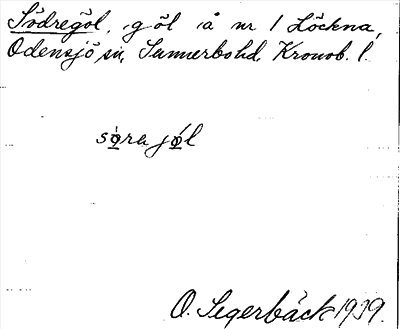 Södregöl, göl å nr 1 Löckna,
Odensjö sn, Sunnerbohd, Kronob. l.
sø̱̀ra jǿ̱l
O. Segerbäck 1939.